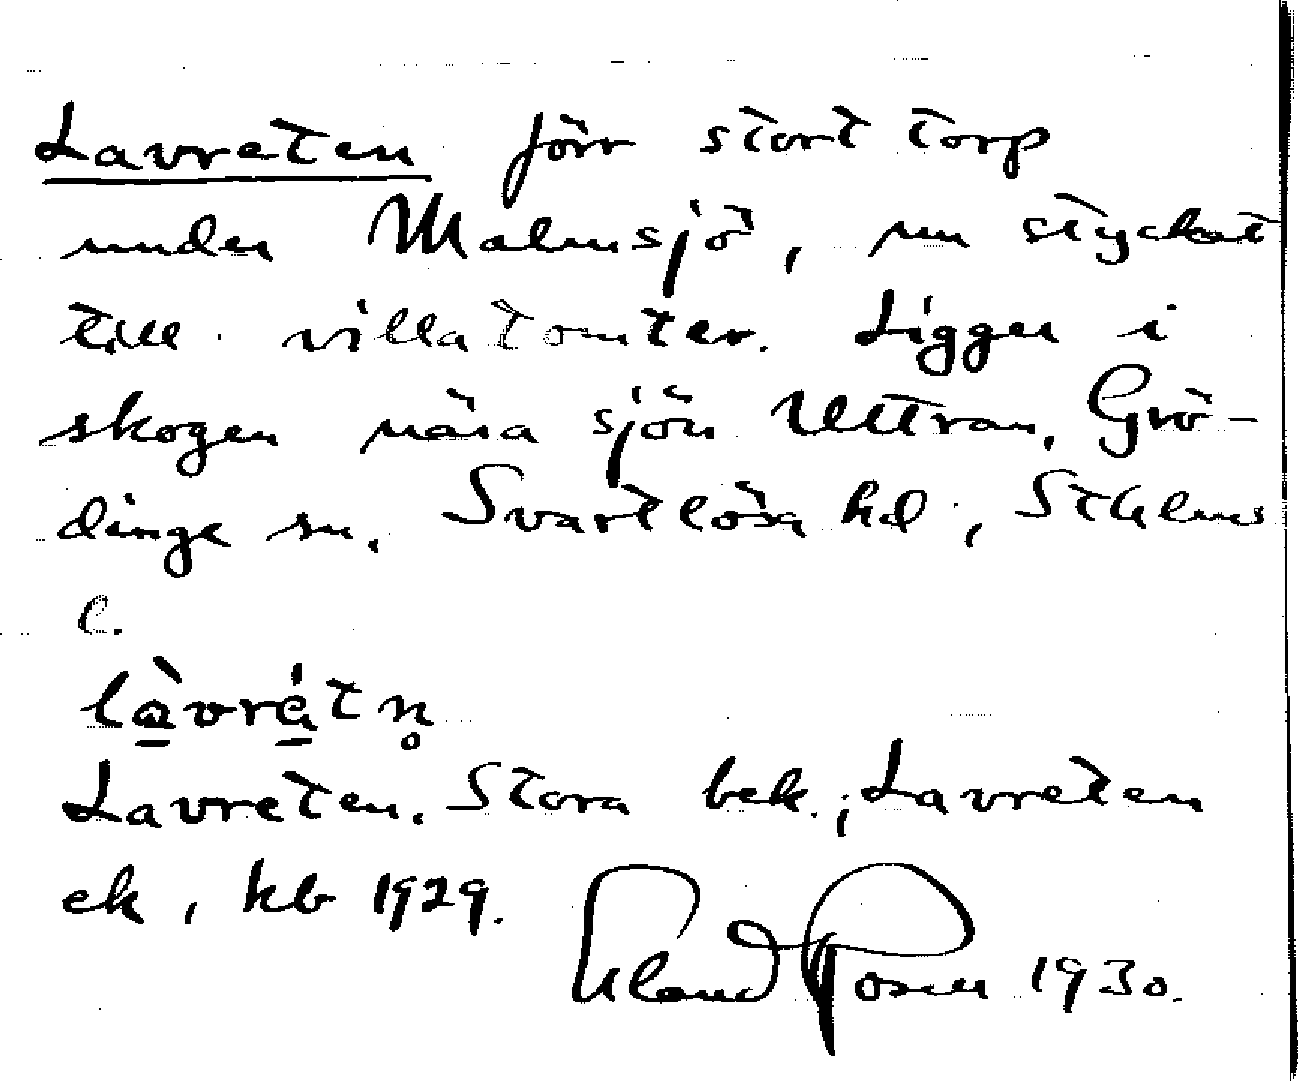 Lavreten förr stort torp
under Malmsjö, nu styckat
till villatomter. Ligger i
skogen nära sjön Uttran, Grö-
dinge sn. Svartlösa hd., Sthlms
l.
làvrétn̥
Lavreten. Stora bek.; Lavreten
ek, kb 1929.
Erland Rosell 1930.